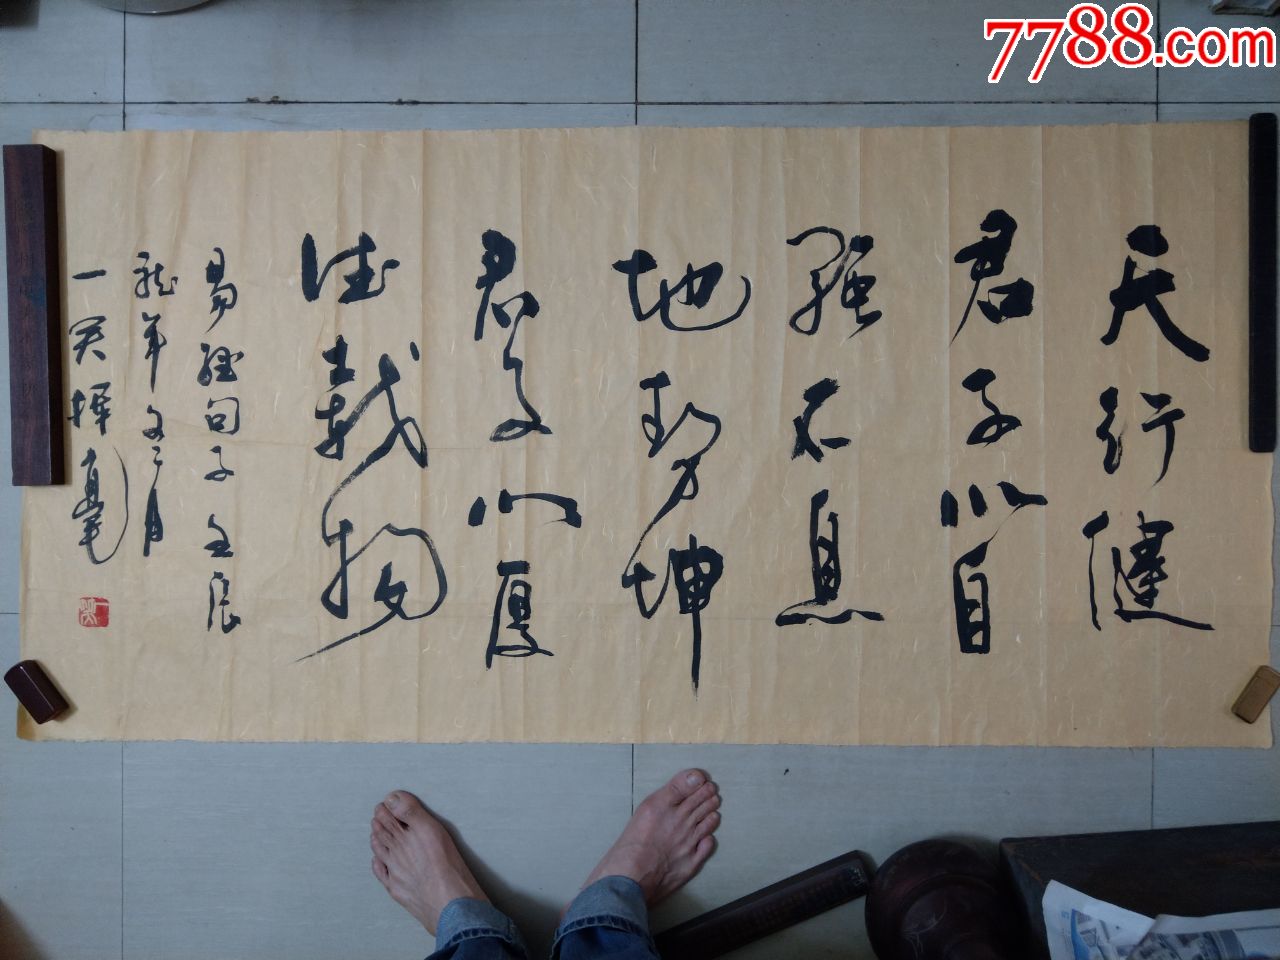 天行健
君子以自
强不息
地势坤
君子以厚
德载物
易经句子 壬辰
龙年文三月
一笑挥毫
7788.com